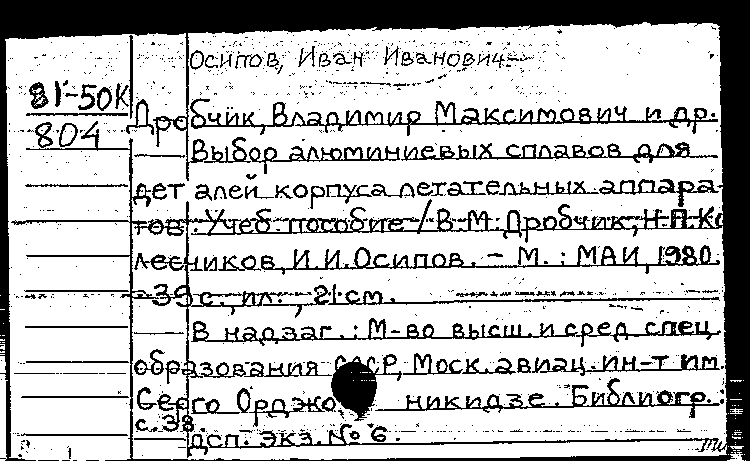 Осипов, Иван Иванович
81-50К
804
Дробчик, Владимир Максимович и др.
Выбор алюминиевых сплавов для
деталей корпуса летательных аппара-
тов : Учеб. пособие / В.М. Дробчик, Н.П. Ко
лесников, И.И. Осипов. - М. : МАИ, 1980.
- 39 с., ил. ; 21 см.
В надзаг. : М-во высш. и сред спец.
образования СССР, Моск. авиац. ин-т им
Серго Орджо никидзе. Библиогр. :
с. 38.
дсп. экз. № 6.